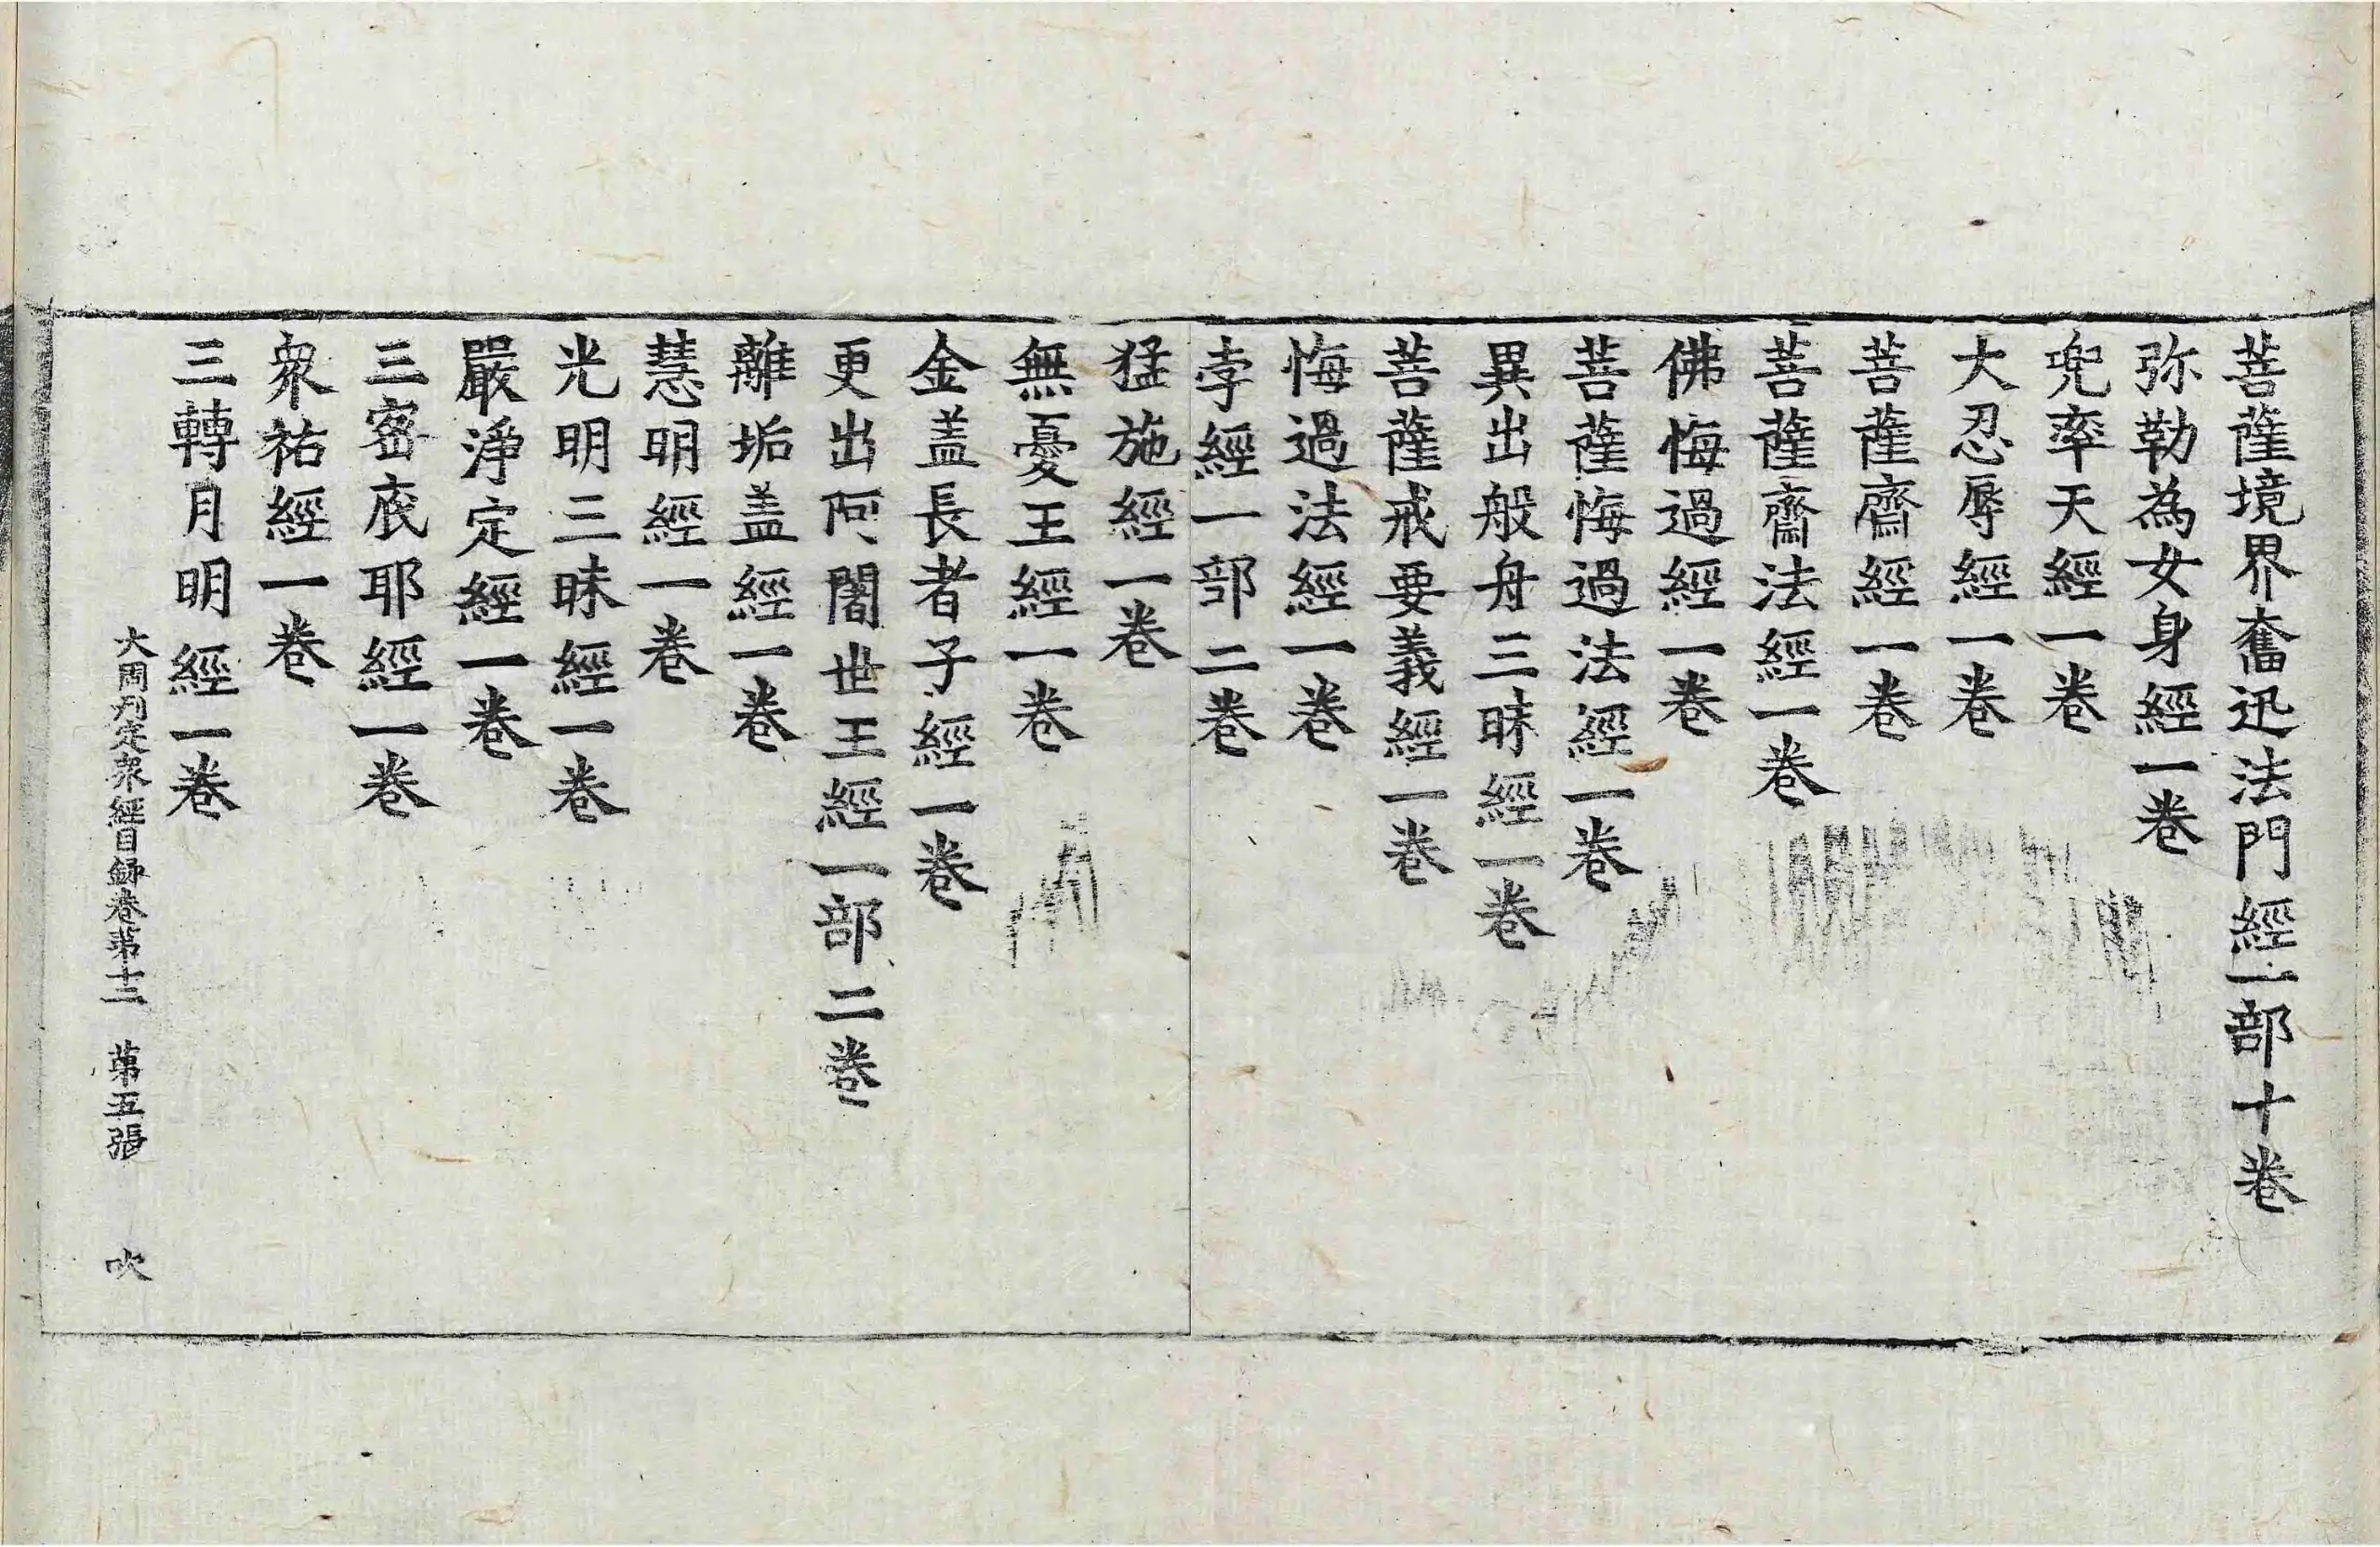 菩薩境界奮迅法門經一部十卷
弥勒為女身經一卷
兜率天經一卷
大忍辱經一卷
菩薩齋經一卷
菩薩齋法經一卷
佛悔過經一卷
菩薩悔過法經一卷
異出般舟三昧經一卷
菩薩戒要義經一卷
悔過法經一卷
孛經一部二卷
猛施經一卷
無憂王經一卷
金盖長者子經一卷
更出阿闍世王經一部二卷
離垢盖經一卷
慧明經一卷
光明三昧經一卷
嚴淨定經一卷
三密底耶經一卷
衆祐經一卷
三轉月明經一卷
大周刋定衆經目録卷苐十三 苐五張 吹